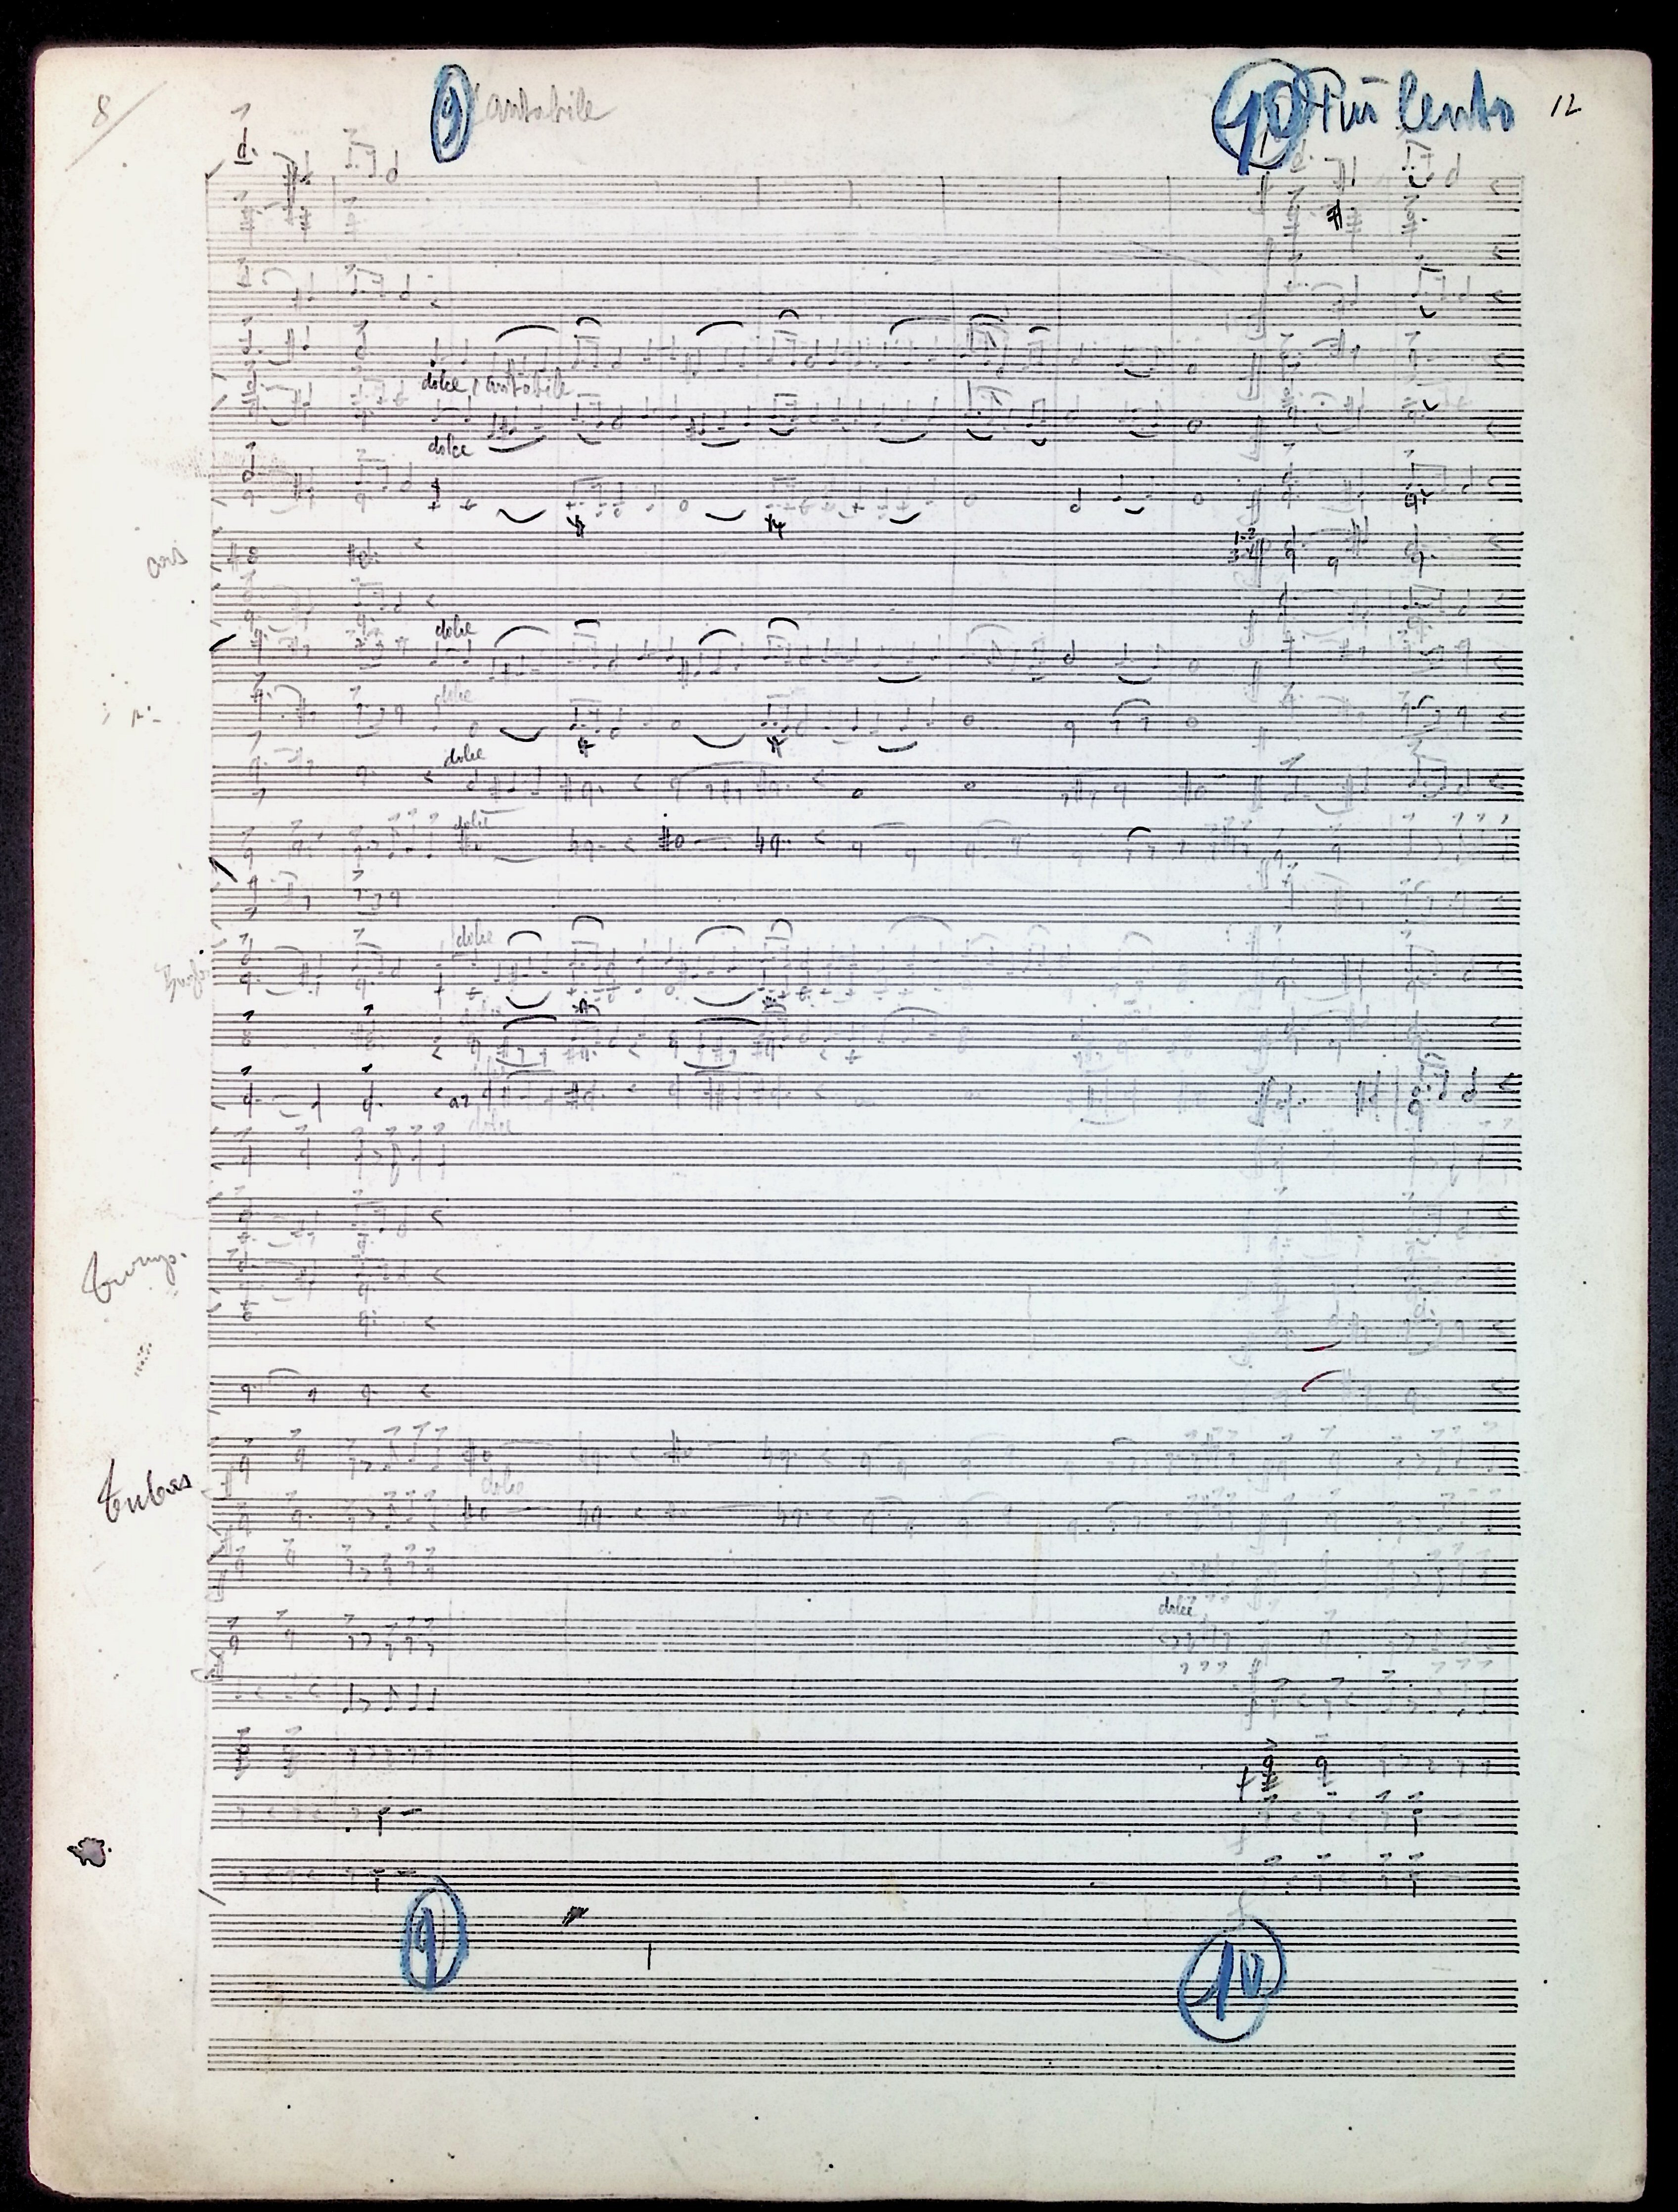 8
9 Cantabile
10 Più lento
12
dolce, cantabile
dolce
1-2
3-4
dolce
dolce
dolce
dolce
dolce
a2
dolce
Tromp.
Tubas
dolce
dolce
9
10